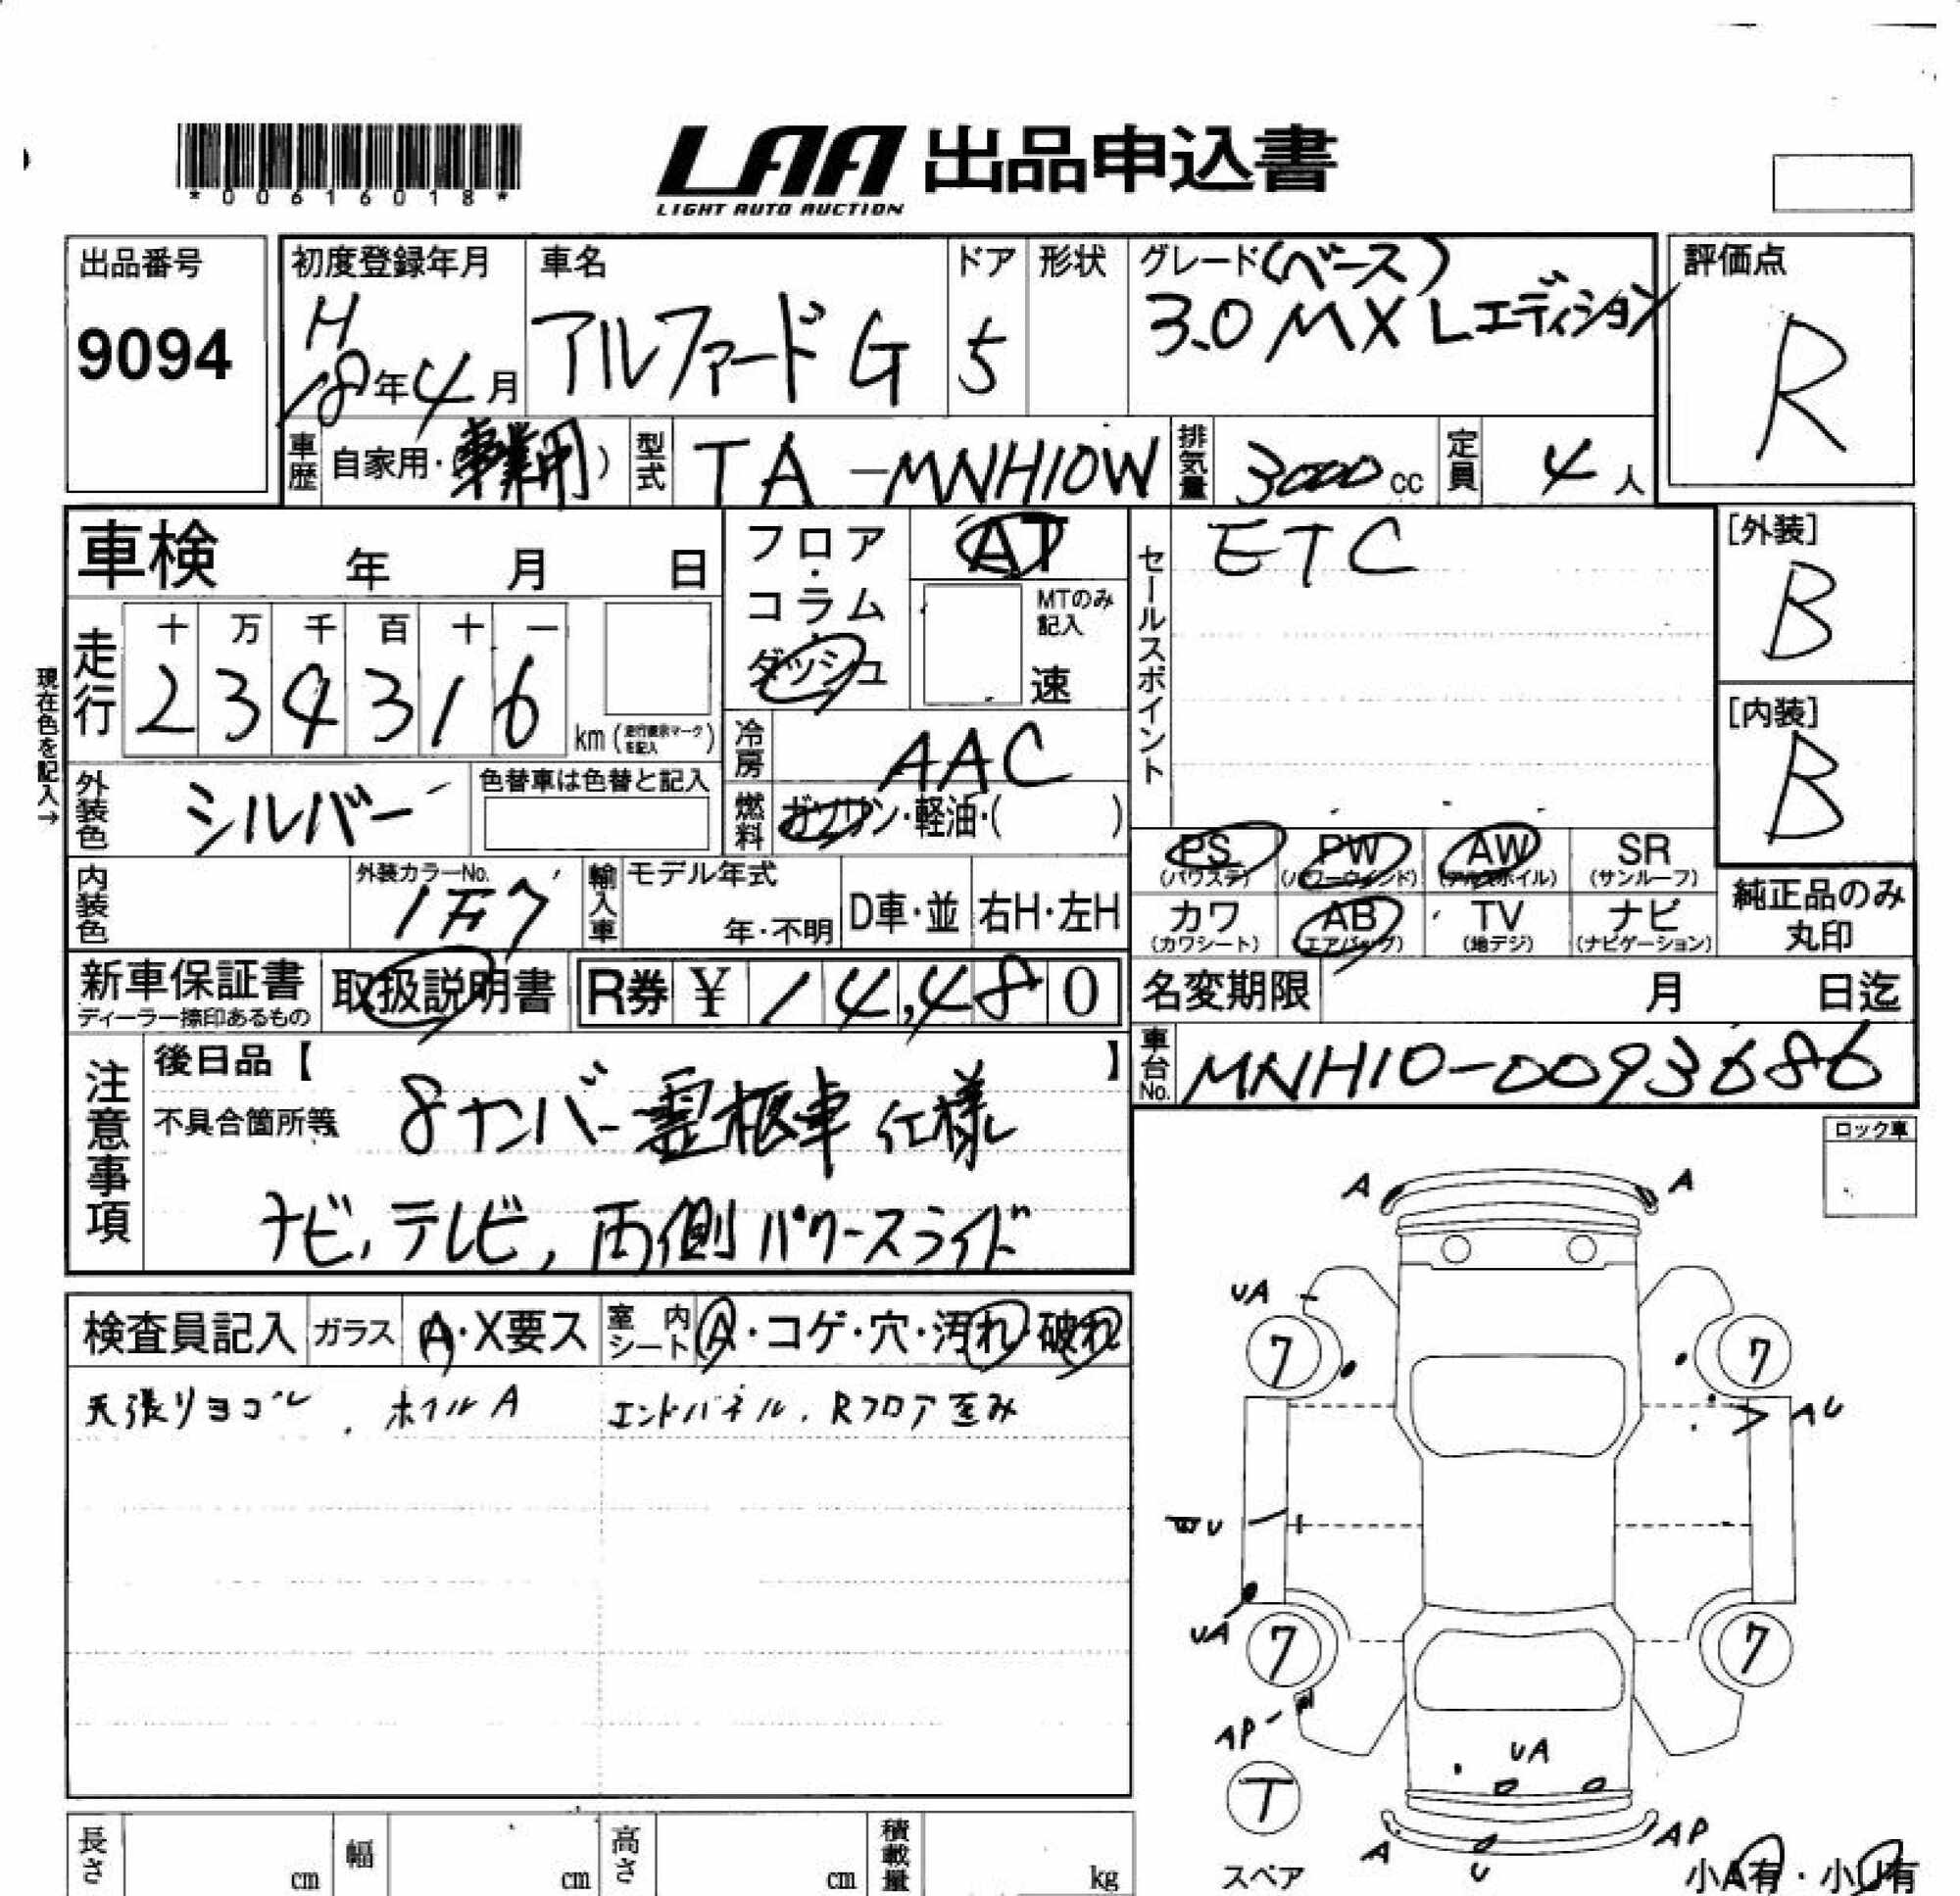 *00616018*
LAA 出品申込書
LIGHT AUTO AUCTION
出品番号
9094
初度登録年月
H
18年4月
車名
アルファード G
ドア
5
形状
グレード(ベース)
3.0 MX Lエディション
評価点
R
車歴
自家用・( )
型式
TA-MNH10W
排気量
3000 cc
定員
4 人
車検 年 月 日
フロア・コラム・ダッシュ
AT
MTのみ記入
速
セールスポイント
ETC
[外装]
B
[内装]
B
現在色を記入→
走行
十 万 千 百 十 一
2 3 4 3 1 6
km
冷房
AAC
外装色
シルバー
色替車は色替と記入
燃料
ガソリン・軽油・( )
PS
(パワステ)
PW
(パワーウィンド)
AW
(アルミホイル)
SR
(サンルーフ)
内装色
外装カラーNo.
輸入車
モデル年式
年・不明
D車・並
右H・左H
カワ
(カワシート)
AB
(エアバッグ)
TV
(地デジ)
ナビ
(ナビゲーション)
純正品のみ
丸印
新車保証書
ディーラー捺印あるもの
取扱説明書
R券 ¥ 14,480
名変期限 月 日迄
車台No.
MNH10-0093686
注意事項
後日品【 】
不具合箇所等 8ナンバー霊柩車仕様
ナビ, テレビ, 両側パワースライド
ロック車
検査員記入
ガラス
A・X要ス
室内シート
A・コゲ・穴・汚れ・破れ
天張りヨゴレ . ホイルA エンドパネル. Rフロア歪み
A
A
UA
7
7
AU
U
UA
7
7
AP
UA
T
スペア
A
U
AP
小A有・小U有
長さ cm
幅 cm
高さ cm
積載量 kg